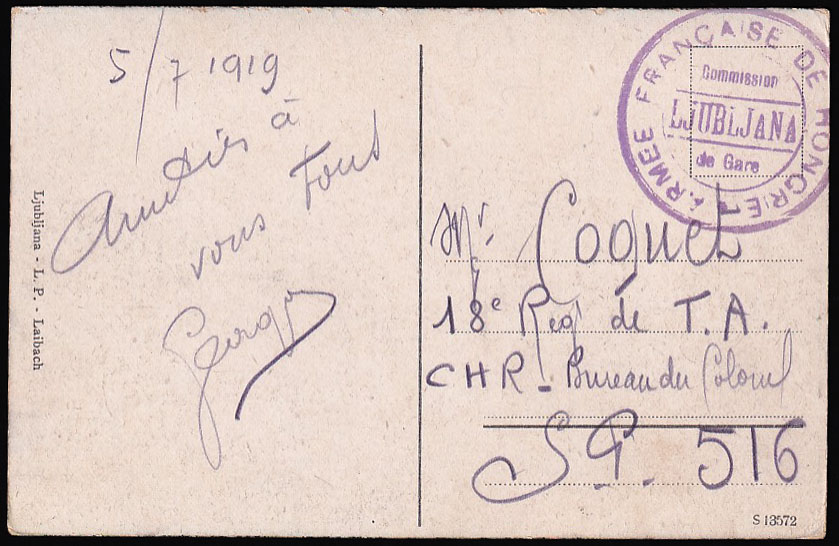 5/7 1919
Amitiés à
vous Tous
Georges
Ljubljana - L. P. - Laibach
ARMÉE FRANÇAISE DE HONGRIE
Commission
LJUBLJANA
de Gare
Mr. Coquet
18e Reg de T.A.
CHR - Bureau du Colonel
S.P. 516
S 13572